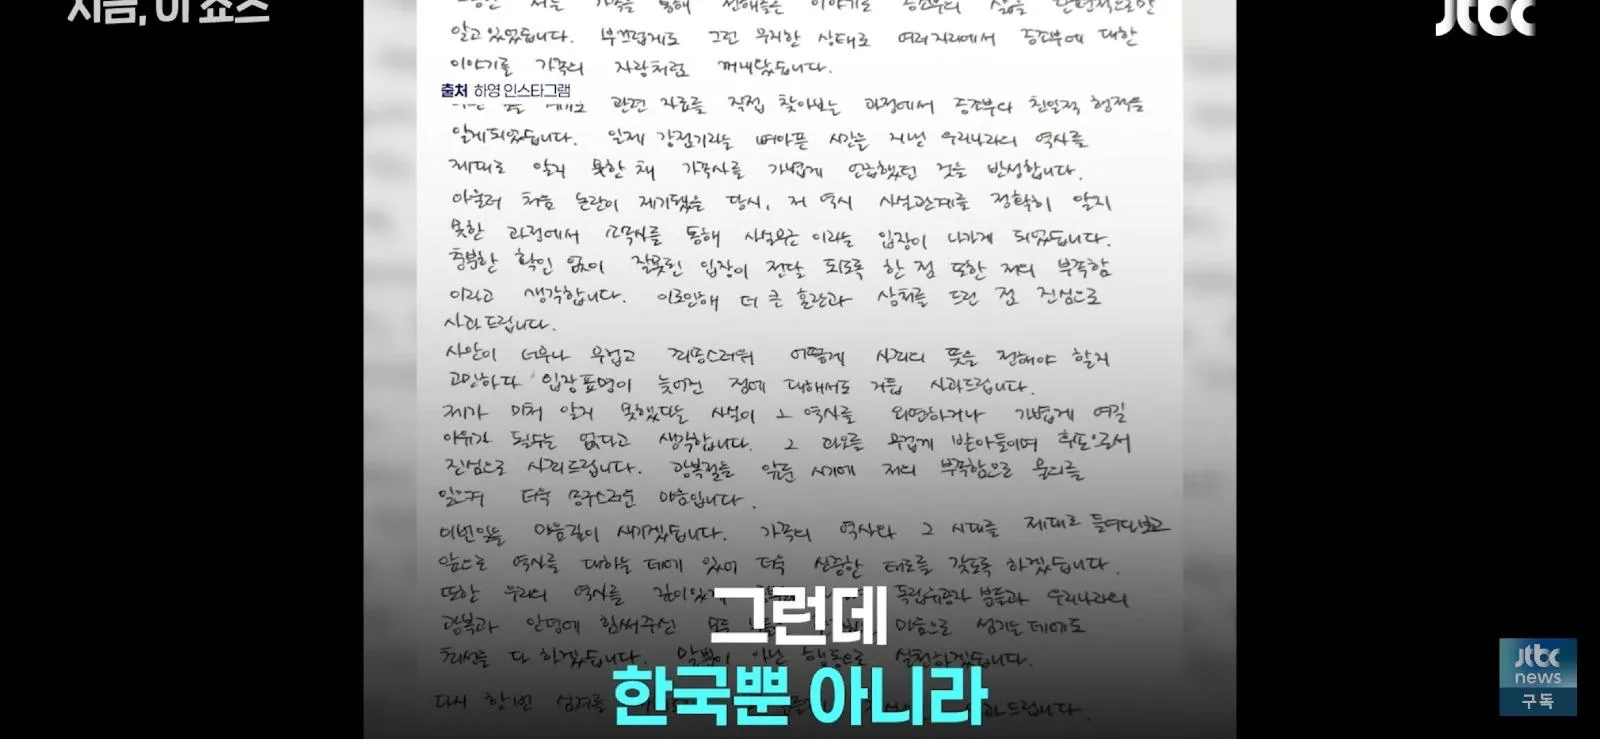 지금, 이 쇼츠
jtbc
알고 있었습니다. 부끄럽게도 그런 무지한 상태로 여러 자리에서 증조부에 대한
이야기를 가족의 자랑처럼 꺼내왔습니다.
출처 하영 인스타그램
관련 자료를 직접 찾아보는 과정에서 증조부의 친일적 행적을
알게 되었습니다. 일제 강점기라는 뼈아픈 시간을 지닌 우리나라의 역사를
제대로 알지 못한 채 가족사를 가볍게 언급했던 것을 반성합니다.
아울러 처음 논란이 제기됐을 당시, 저 역시 사실관계를 정확히 알지
못한 과정에서 소속사를 통해 사실무근이라는 입장이 나가게 되었습니다.
충분한 확인 없이 잘못된 입장이 전달 되도록 한 점 또한 저의 부족함
이라고 생각합니다. 이로인해 더 큰 혼란과 상처를 드린 점 진심으로
사과드립니다.
사안이 너무나 무겁고 죄송스러워 어떻게 사죄의 뜻을 전해야 할지
고민하다 입장표명이 늦어진 점에 대해서도 거듭 사과드립니다.
제가 미처 알지 못했다는 사실이 그 역사를 외면하거나 가볍게 여길
이유가 될수는 없다고 생각합니다. 그 과오를 무겁게 받아들이며 후손으로서
진심으로 사죄드립니다. 광복절을 앞둔 시기에 저의 부족함으로 물의를
일으켜 더욱 송구스러운 마음입니다.
이번일을 마음깊이 새기겠습니다. 가족의 역사와 그 시대를 제대로 들여다보고
앞으로 역사를 대하는 데에 있어 더욱 신중한 태도를 갖도록 하겠습니다.
또한 우리의 역사를 깊이있게 독립유공자 분들과 우리나라의
광복과 안녕에 힘써주신 모든 마음으로 섬기는 데에도
최선을 다 하겠습니다. 말뿐이 아닌 행동으로 실천하겠습니다.
다시 한번 심려를 사과드립니다.
그런데
한국뿐 아니라
jtbc
news
구독